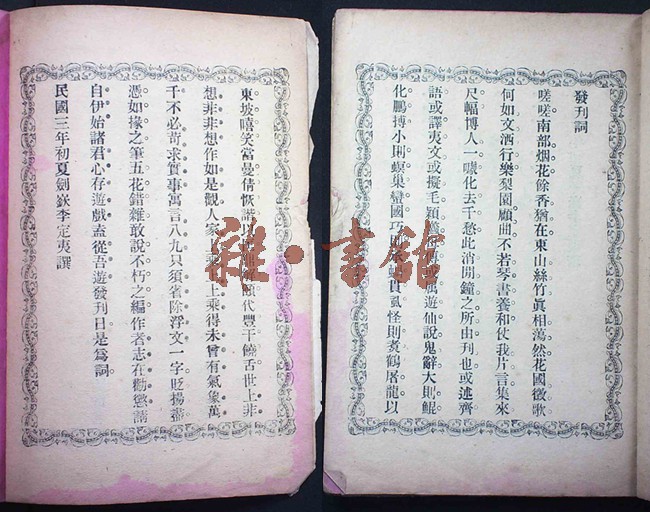 發刊詞
嗟嗟南部烟花餘香猶在東山絲竹眞相蕩然花國徵歌
何如文酒行樂梨園顧曲不若琴書養和仗我片言集來
尺幅博人一噱化去千愁此消閒鐘之所由刊也或述齊
語或譯夷文或擬毛穎傳或遊仙說鬼辭大則鯤
化鵬搏小則螟巢蠻國巧貫虱怪則煑鶴屠龍以
東坡嘻笑當曼倩恢諧以代豐干饒舌世上非
想非非想作如是觀人家上乘上乘得未曾有氣象萬
千不必苛求實事寓言八九只須省除浮文一字貶揚
憑如椽之筆五花錯雜敢說不朽之編作者志在勸懲請
自伊始諸君心存遊戲盍從吾遊發刊日是爲詞
民國三年初夏劍嶽李定夷譔
雜·書館